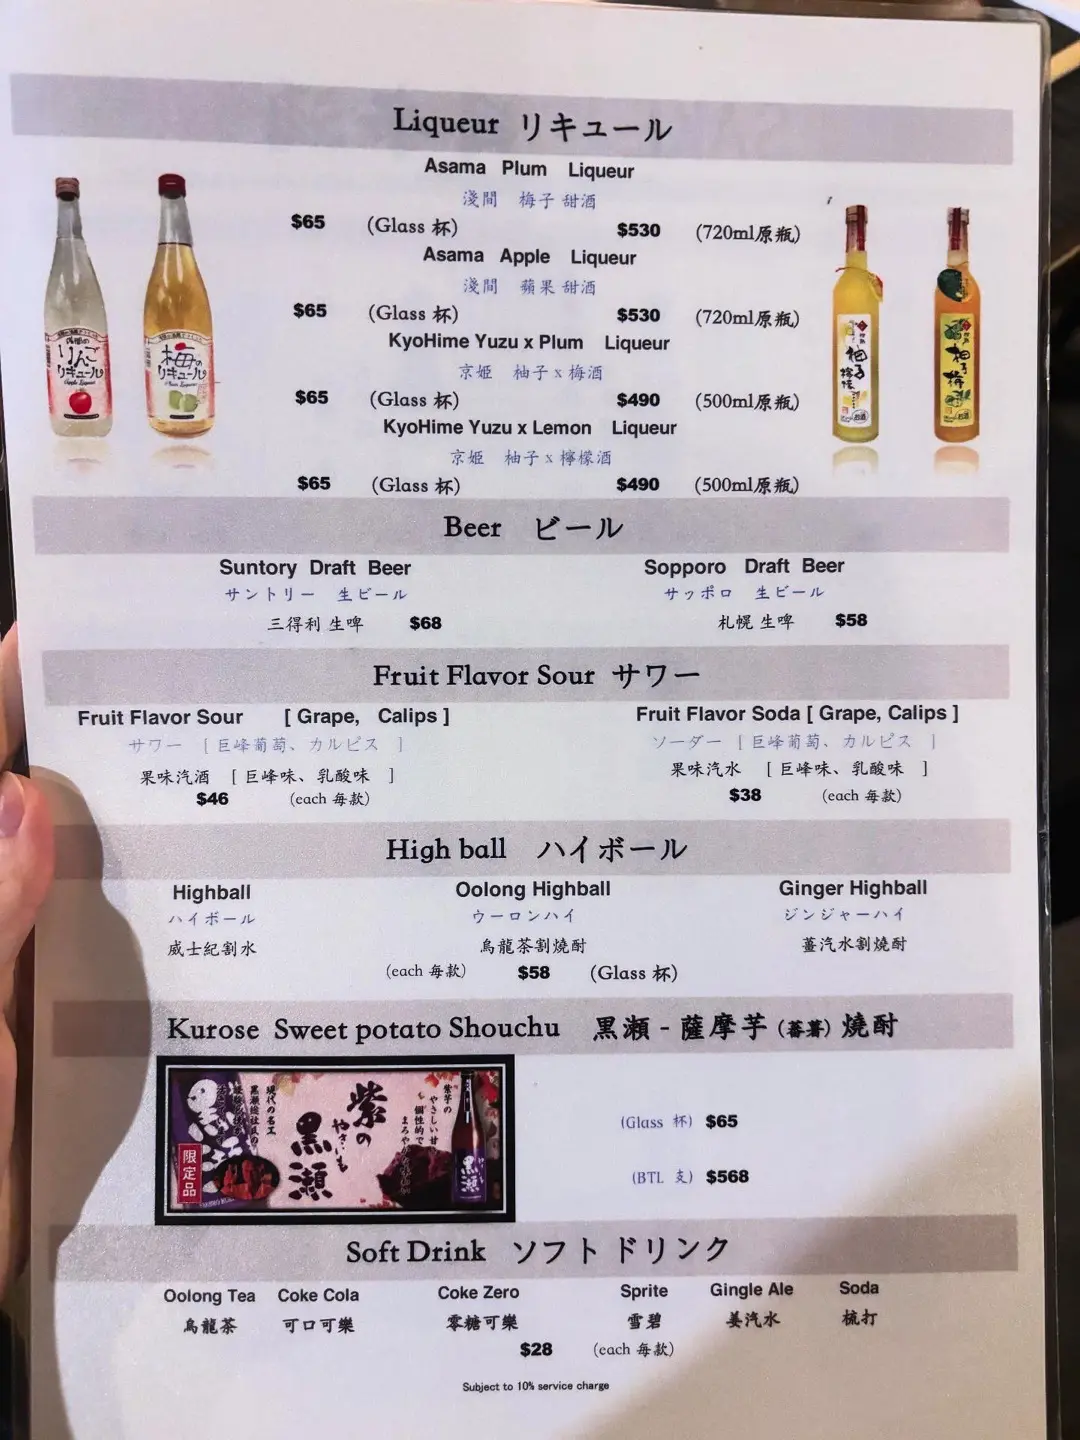 Liqueur リキュール
Asama Plum Liqueur
淺間 梅子 甜酒
$65 (Glass 杯) $530 (720ml原瓶)
Asama Apple Liqueur
淺間 蘋果 甜酒
$65 (Glass 杯) $530 (720ml原瓶)
KyoHime Yuzu x Plum Liqueur
京姬 柚子 x 梅酒
$65 (Glass 杯) $490 (500ml原瓶)
KyoHime Yuzu x Lemon Liqueur
京姬 柚子 x 檸檬酒
$65 (Glass 杯) $490 (500ml原瓶)
りんご
リキュール
Apple Liqueur
梅の
リキュール
Plum Liqueur
Beer ビール
Suntory Draft Beer Sopporo Draft Beer
サントリー 生ビール サッポロ 生ビール
三得利 生啤 $68 札幌 生啤 $58
Fruit Flavor Sour サワー
Fruit Flavor Sour [ Grape, Calips ] Fruit Flavor Soda [ Grape, Calips ]
サワー [ 巨峰葡萄、カルピス ] ソーダー [ 巨峰葡萄、カルピス ]
果味汽酒 [ 巨峰味、乳酸味 ] 果味汽水 [ 巨峰味、乳酸味 ]
$46 (each 每款) $38 (each 每款)
High ball ハイボール
Highball Oolong Highball Ginger Highball
ハイボール ウーロンハイ ジンジャーハイ
威士紀割水 烏龍茶割燒酎 薑汽水割燒酎
(each 每款) $58 (Glass 杯)
Kurose Sweet potato Shouchu 黒瀬 - 薩摩芋 (蕃薯) 燒酎
紫の
やさしいも
黒瀬
限定品
現代の名工
紫芋の
やさしい甘
個性的で
(Glass 杯) $65
(BTL 支) $568
Soft Drink ソフトドリンク
Oolong Tea Coke Cola Coke Zero Sprite Gingle Ale Soda
烏龍茶 可口可樂 零糖可樂 雪碧 姜汽水 梳打
$28 (each 每款)
Subject to 10% service charge